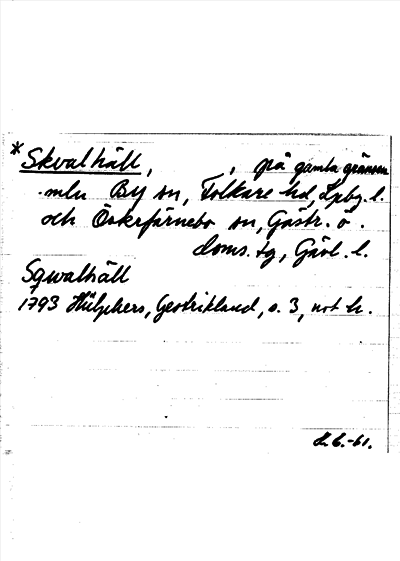 *Skvalhäll, , på gamla gränsen
mln By sn, Folkare hd, Kpbg. l.
och Österfärnebo sn, Gästr. ö.
doms. tg, Gävl. l.
Sqwalhäll
1793 Hülphers, Gestrikland, s. 3, not h.